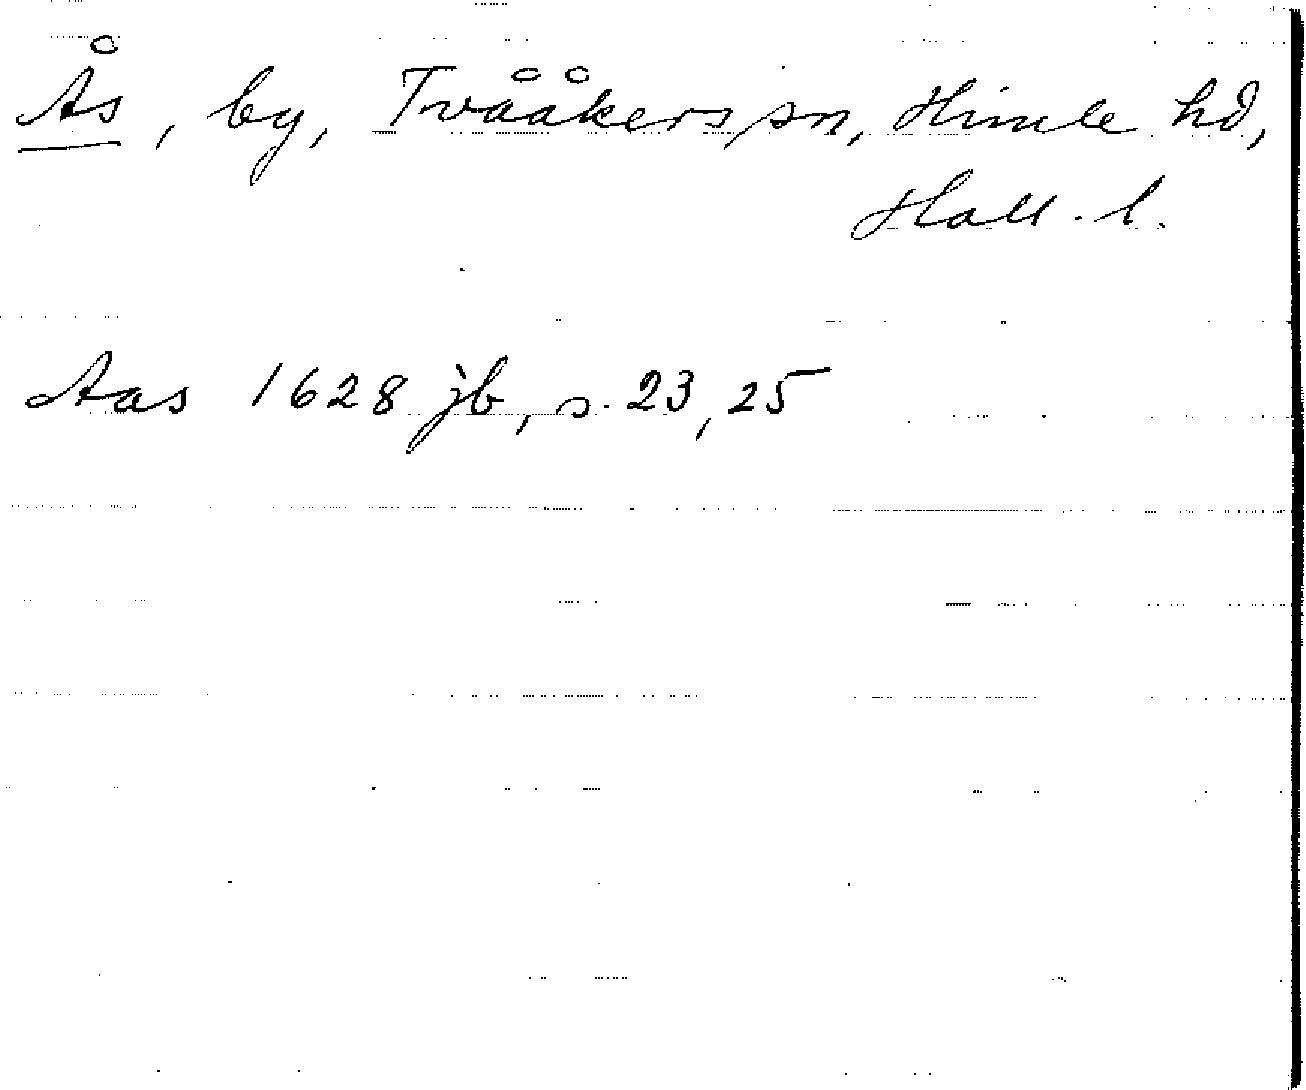 Ås, by, Tvååkers sn, Himle hd,
Hall. l.
Aas 1628 jb, s. 23, 25